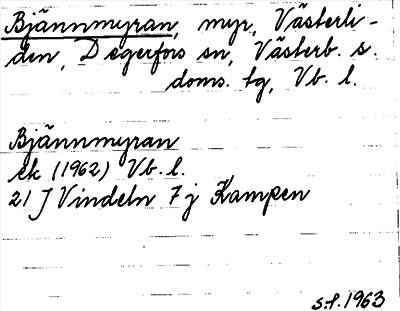 Bjännmyran, myr, Västerli-
den, Degerfors sn, Västerb. s.
doms. tg, Vb. l.
Bjännmyran
ek (1962) Vb. l.
21 J Vindeln 7 j Kampen
s.f. 1963